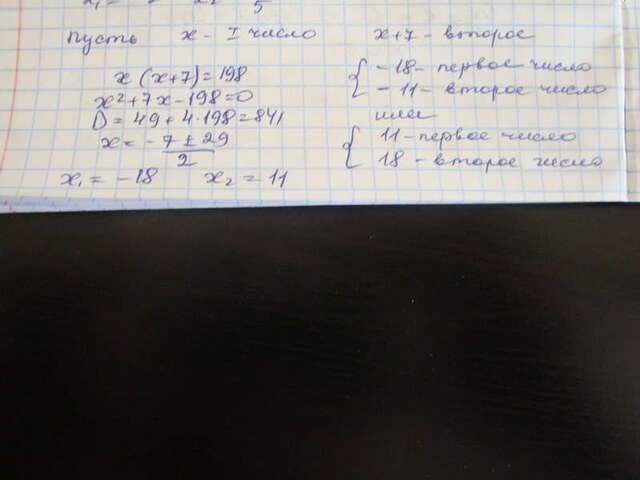 Пусть x - I число
x + 7 - второе
x (x+7) = 198
x² + 7x - 198 = 0
D = 49 + 4·198 = 841
x = -7 ± 29
2
x₁ = -18 x₂ = 11
{ -18 - первое число
-11 - второе число
или
{ 11 - первое число
18 - второе число